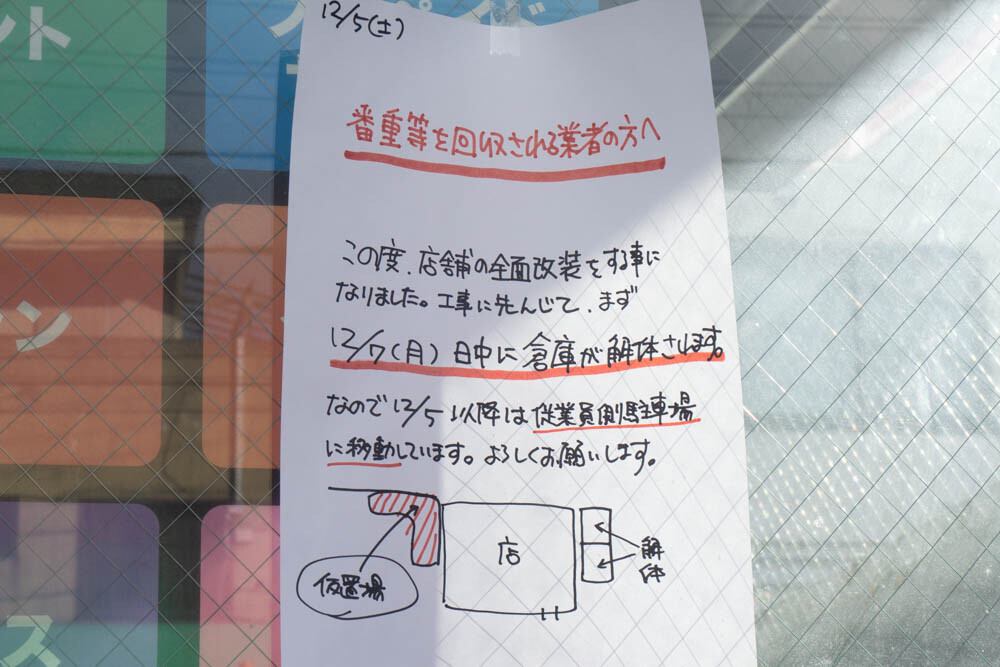 12/5(土)
番重等を回収される業者の方へ
この度、店舗の全面改装をする事に
なりました。工事に先んじて、まず
12/7(月)日中に倉庫が解体されます。
なので12/5以降は従業員側駐車場
に移動しています。よろしくお願いします。
仮置場
店
解体
ット
ン
ス